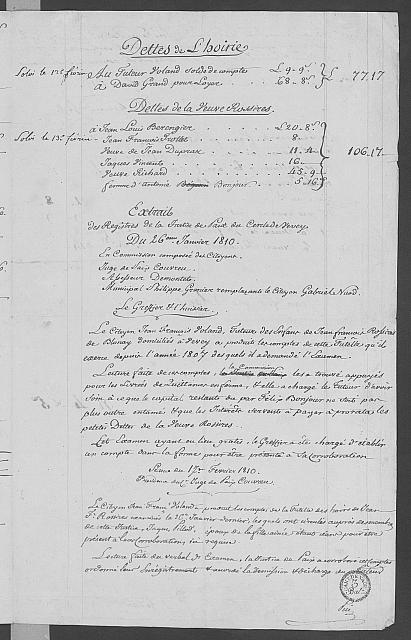 Dettes de L'hoirie
Solvé le 12e février Au Tuteur Roland Solde de comptes £ 9..9.
à David Grand pour Loyer 68..8. £ 77.17
Dettes de la Veuve Rossires.
à Jean Louis Berengier £20..8.
Solvé le 13e février Jean François Trottet 8
Veuve de Jean Dupraz 11..4
Jaques Vincent 16
Veuve Richard 45..9
femme d'antoine Bonjour 5..16 106.17.
Extrait
des Registres de la Justice de Paix du Cercle de Vevey
Du 26eme Janvier 1810.
En Commission composée des Citoyens
Juge de Paix Couvreu
Assesseur Demontet
Municipal Philippe Grenier remplaçant le Citoyen Gabriel
Le Greffier & l'huissier.
Le Citoyen Jean François Roland, Tuteur des Enfans de Jean françois Rossires
de Blonay domiciliés à Vevey a produit les comptes de cette Tutelle qu'il
exerce depuis l'année 1807 desquels il a demandé l'Examen.
Lecture faite de ces comptes, la Commission les a trouvé appuyés
pour les Livrées de quittances en forme, & elle a chargé le Tuteur d'avoir
Soin à ce que le capital restant du par Félix Bonjour ne soit pas
plus outre entamé & que les Intérêts servent à payer à prorata les
petites Dettes de la Veuve Rossires.
Cet Examen ayant eu lieu gratis, le Greffier a été chargé d'établir
un compte dans la forme pour être présenté à la Corroboration
Séance du 12e Fevrier 1810.
Présidence du Cn Juge de Paix Couvreu
Le Citoyen Jean Franç Roland produit les comptes de la tutelle des hoirs de Jean
Fs Rossires examinés le 26 Janvier dernier, lesquels ont circulés auprès des membres
de cette Justice, Jaques époux de la fille ainée étant dans pour être
présent à leur corroboration,
Lecture faite du verbal d'Examen, la Justice de Paix a corroboré ces Comptes
ordonné leur Enrégistrement & accordé la démission & décharge